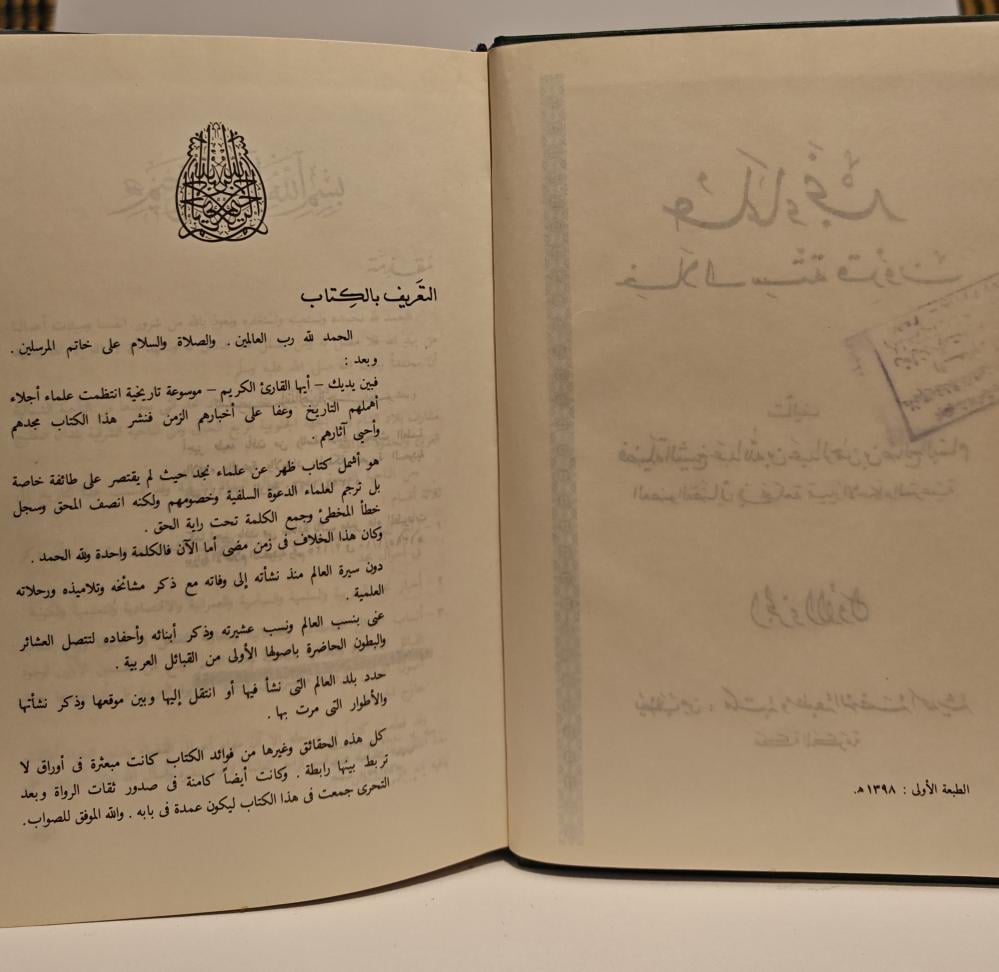 الطبعة الأولى : ١٣٩٨ هـ.
التعريف بالكتاب
الحمد لله رب العالمين . والصلاة والسلام على خاتم المرسلين .
وبعد :
فبين يديك – أيها القارئ الكريم – موسوعة تاريخية انتظمت علماء أجلاء
أهملهم التاريخ وعفا على أخبارهم الزمن فنشر هذا الكتاب مجدهم
وأحيى آثارهم .
هو أشمل كتاب ظهر عن علماء نجد حيث لم يقتصر على طائفة خاصة
بل ترجم لعلماء الدعوة السلفية وخصومهم ولكنه انصف المحق وسجل
خطأ المخطئ وجمع الكلمة تحت راية الحق .
وكان هذا الخلاف فى زمن مضى أما الآن فالكلمة واحدة ولله الحمد .
دون سيرة العالم منذ نشأته إلى وفاته مع ذكر مشائخه وتلاميذه ورحلاته
العلمية .
عنى بنسب العالم ونسب عشيرته وذكر أبنائه وأحفاده لتتصل العشائر
والبطون الحاضرة باصولها الأولى من القبائل العربية .
حدد بلد العالم التى نشأ فيها أو انتقل إليها وبين موقعها وذكر نشأتها
والأطوار التى مرت بها .
كل هذه الحقائق وغيرها من فوائد الكتاب كانت مبعثرة فى أوراق لا
تربط بينها رابطة . وكانت أيضاً كامنة فى صدور ثقات الرواة وبعد
التحرى جمعت فى هذا الكتاب ليكون عمدة فى بابه . والله الموفق للصواب.